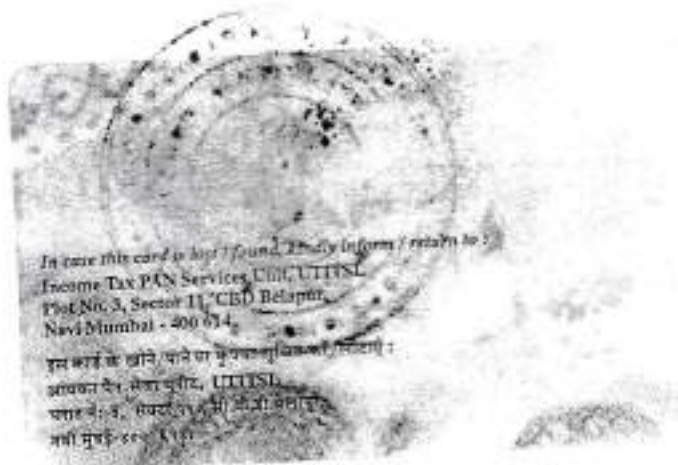 In case this card is lost / found, kindly inform / return to :
Income Tax PAN Services Unit, UTITSL
Plot No. 3, Sector 11, CBD Belapur,
Navi Mumbai - 400 614.
इस कार्ड के खोने/पाने पर कृपया सूचित करें/लौटाएं :
आयकर पैन सेवा यूनीट, UTITSL
प्लाट नं: ३, सेक्टर ११, सी.बी.डी. बेलापूर,
नवी मुंबई-४००